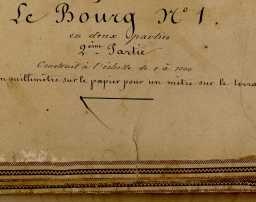 Le Bourg Nº 1.
en deux parties
2ème Partie
Construit à l'échelle de 1 à 1000
un millimètre sur le papier pour un mètre sur le terra